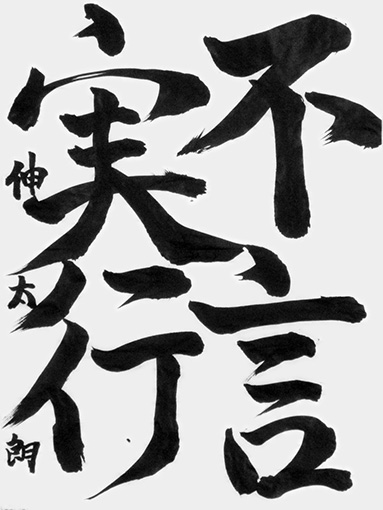 不言
実行
伸太朗